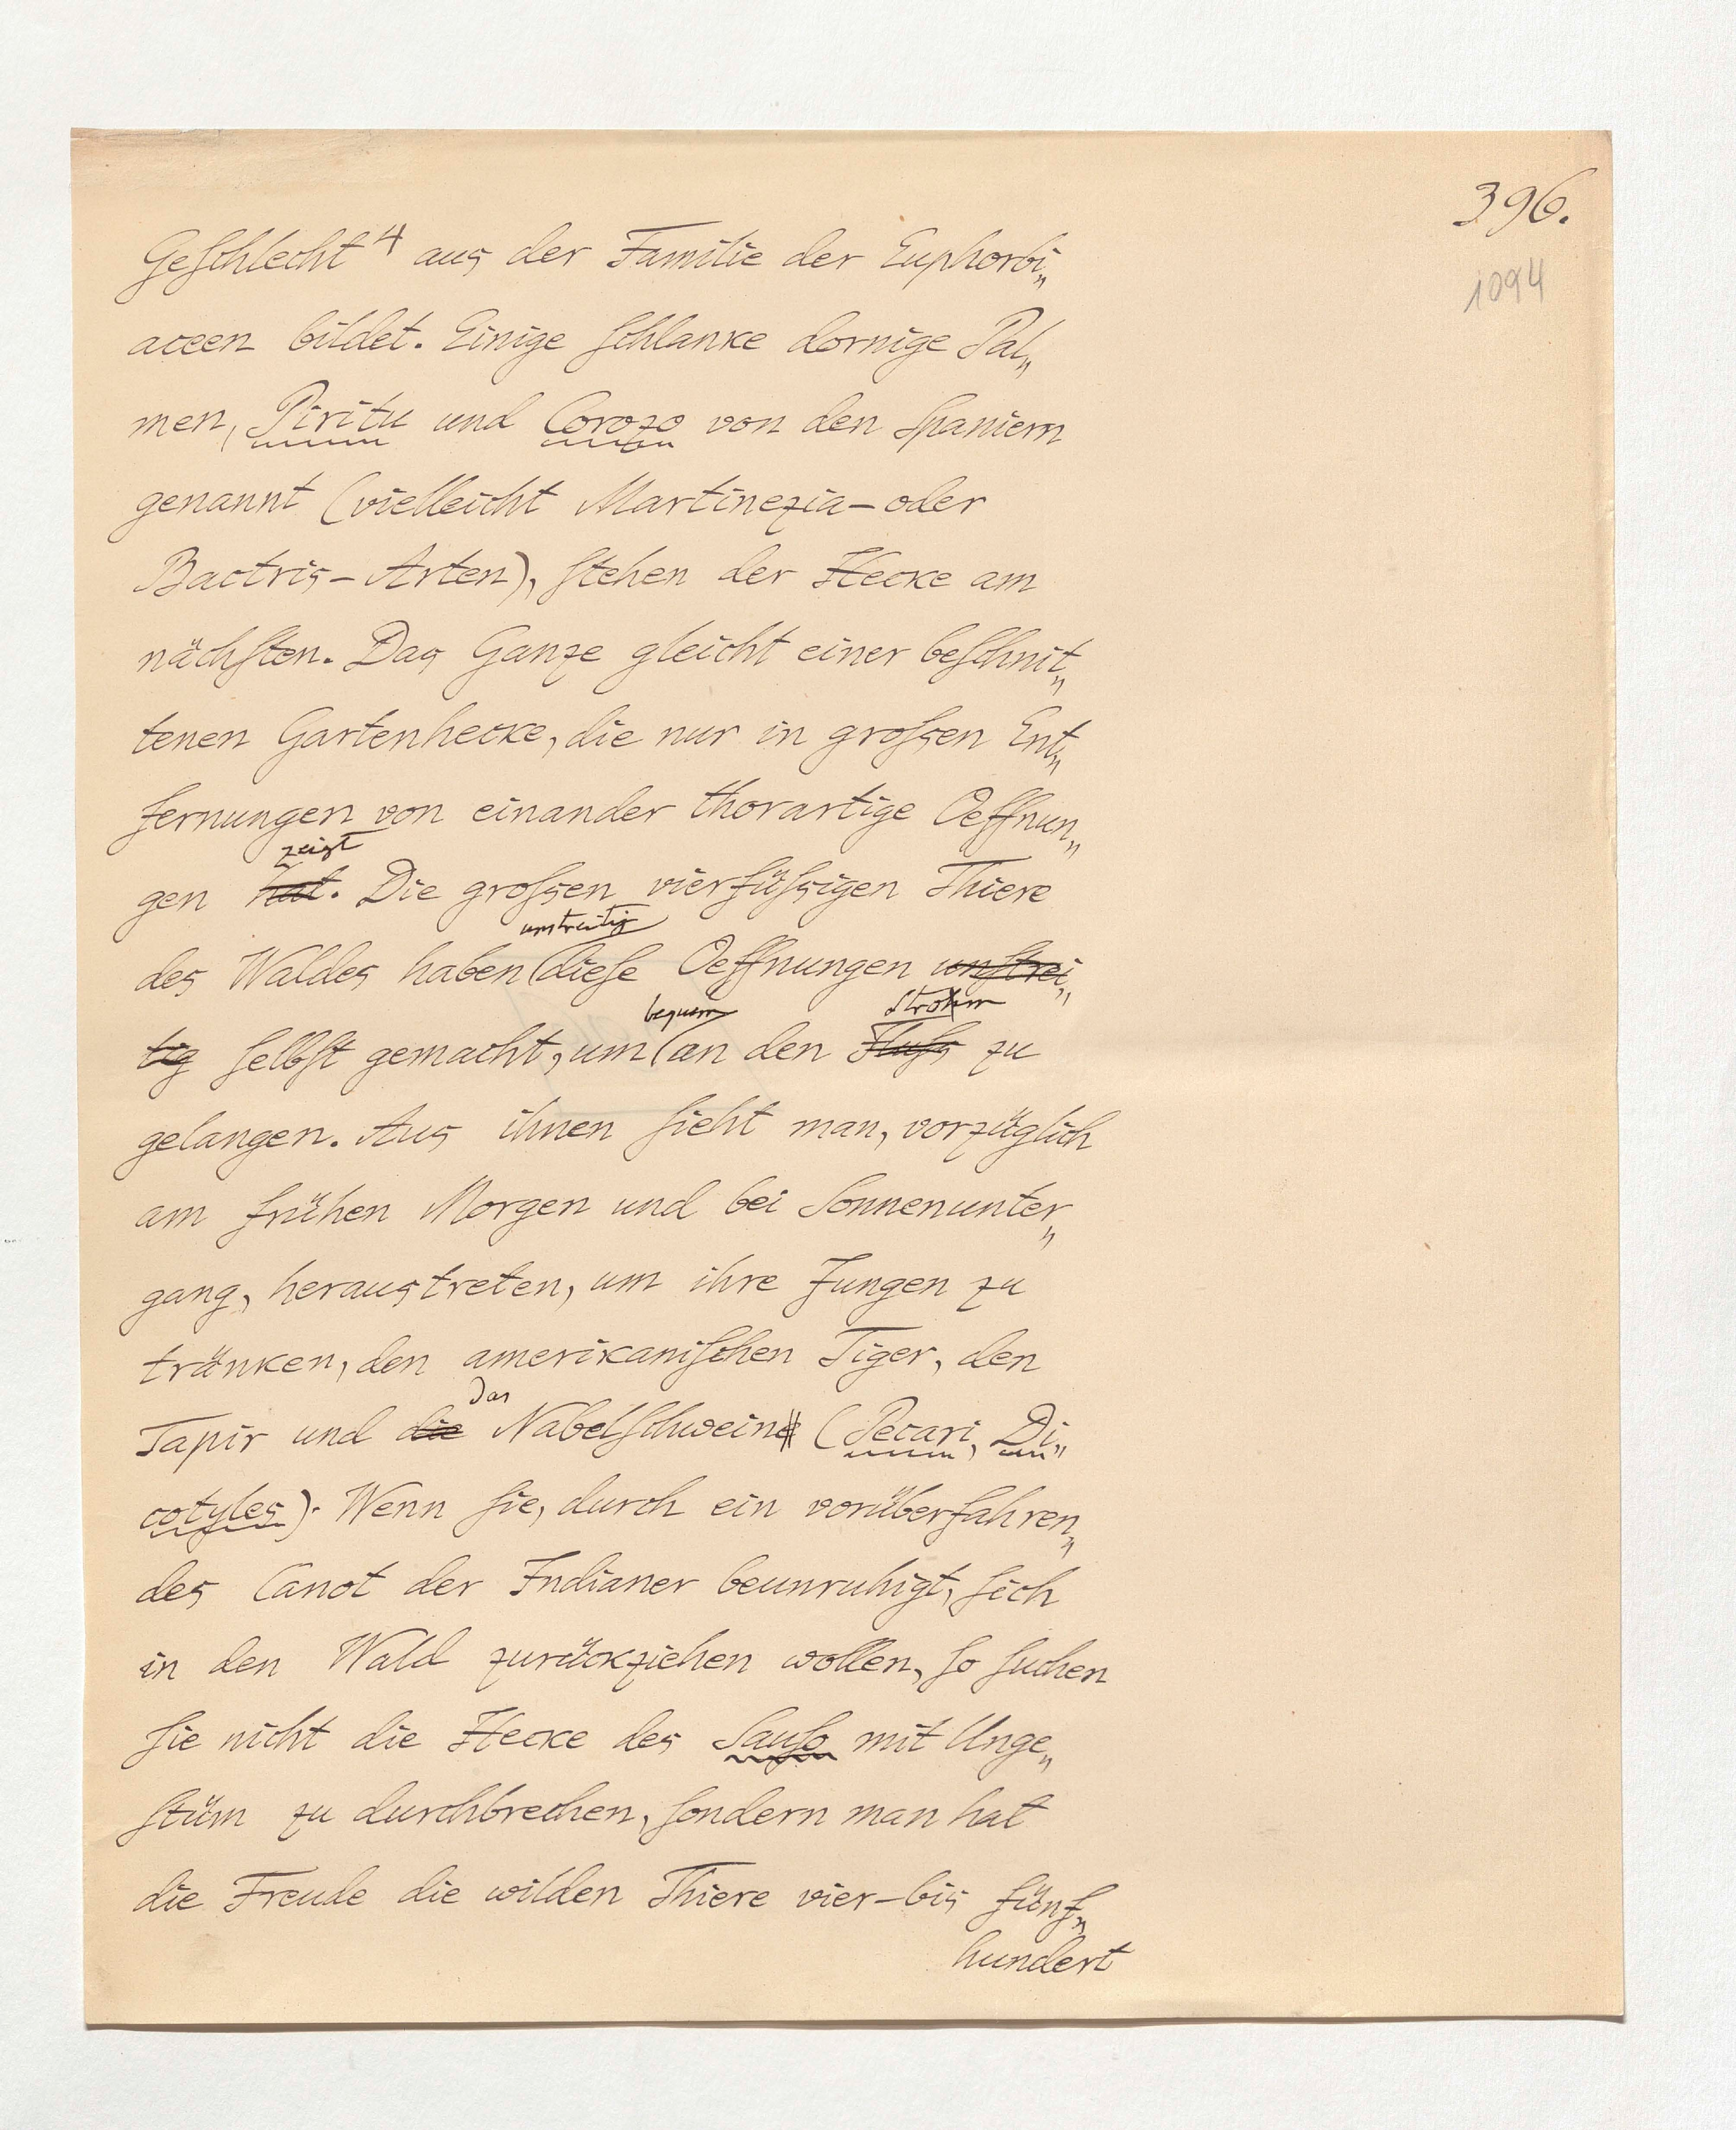 396.
1094
Geschlecht⁴ aus der Familie der Euphorbi„
aceen bildet. Einige schlanke dornige Pal„
men, Piritu und Corozo von den Spaniern
genannt (vielleicht Martinezia- oder
Bactris-Arten), stehen der Hecke am
nächsten. Das Ganze gleicht einer beschnit„
tenen Gartenhecke, die nur in großen Ent„
fernungen von einander thorartige Oeffnun„
zeigt
gen hat. Die großen vierfüßigen Thiere
unstreitig
des Waldes haben (diese Oeffnungen unstrei„
bequem Strohm
tig selbst gemacht, um (an den Fluß zu
gelangen. Aus ihnen sieht man, vorzüglich
am frühen Morgen und bei Sonnenunter„
gang, heraustreten, um ihre Jungen zu
tränken, den amerikanischen Tiger, den
das
Tapir und die Nabelschweine (Pecari, Di„
cotyles). Wenn sie, durch ein vorüberfahren„
des Canot der Indianer beunruhigt, sich
in den Wald zurückziehen wollen, so suchen
sie nicht die Hecke des Sauso mit Unge„
stüm zu durchbrechen, sondern man hat
die Freude die wilden Thiere vier- bis fünf„
hundert